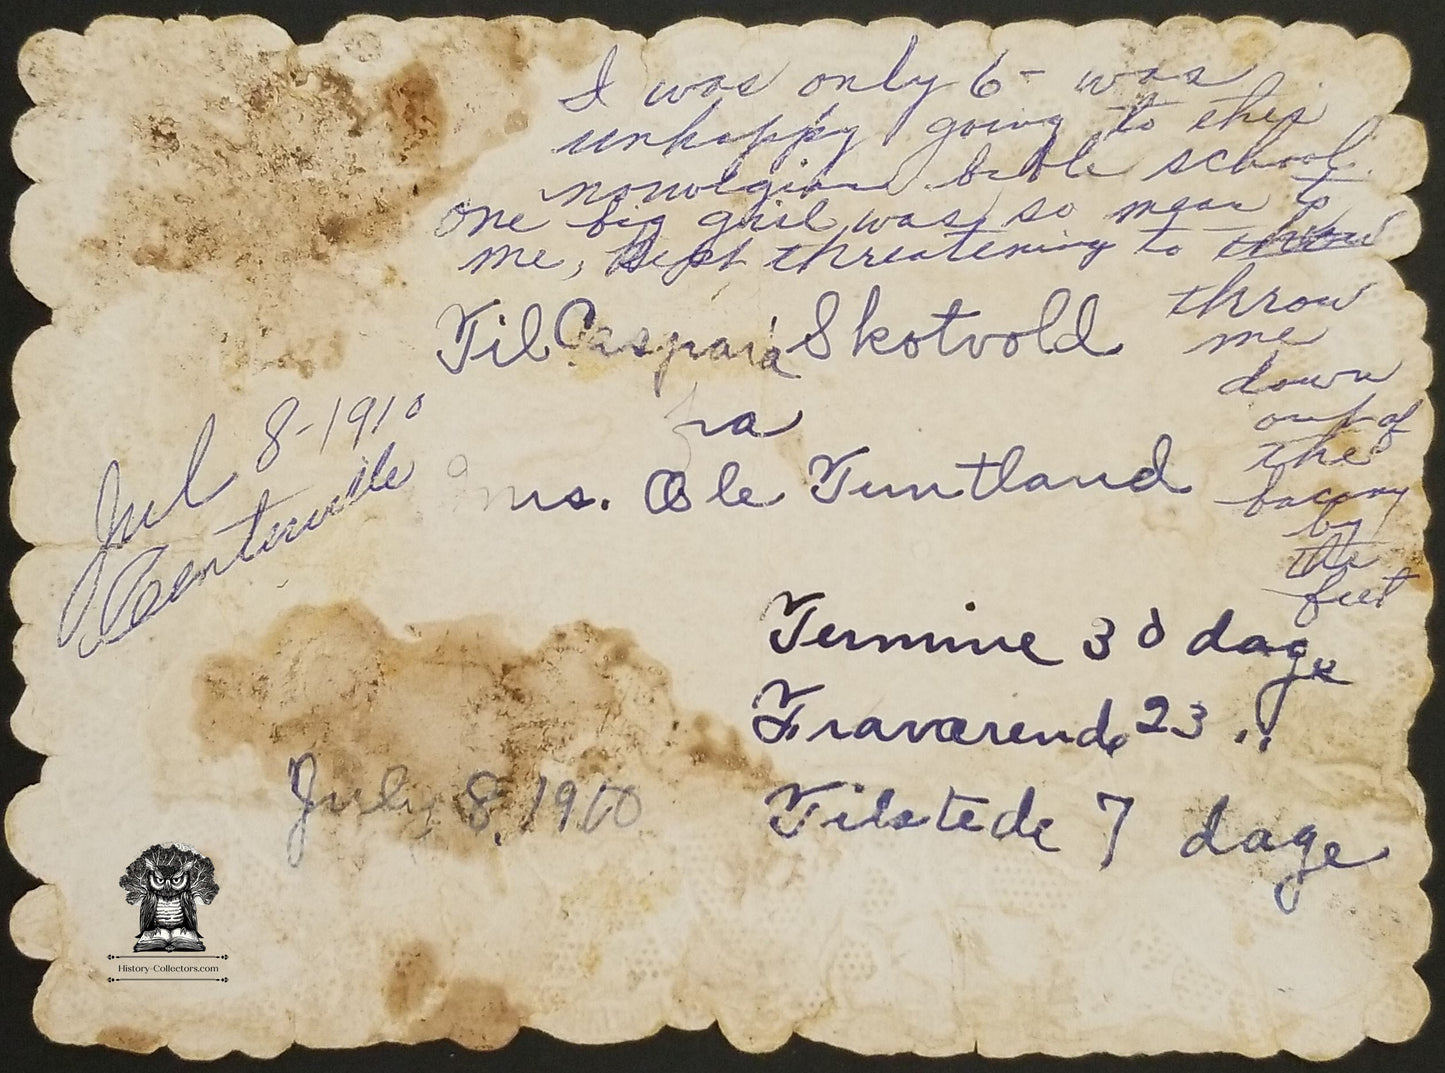 I was only 6- was
unhappy going to this
norwegian bible school.
one big girl was so mean to
me, kept threatening to throw
throw
me
down
out of
the
bacony
by
the
feet
Til Caspara Skotvold
fra
Mrs. Ole Tuntland
Jul 8-1910
Centerville
Termine 30 dage
Fraværende 23 ..
Tilstede 7 dage
July 8, 1910
History-Collectors.com